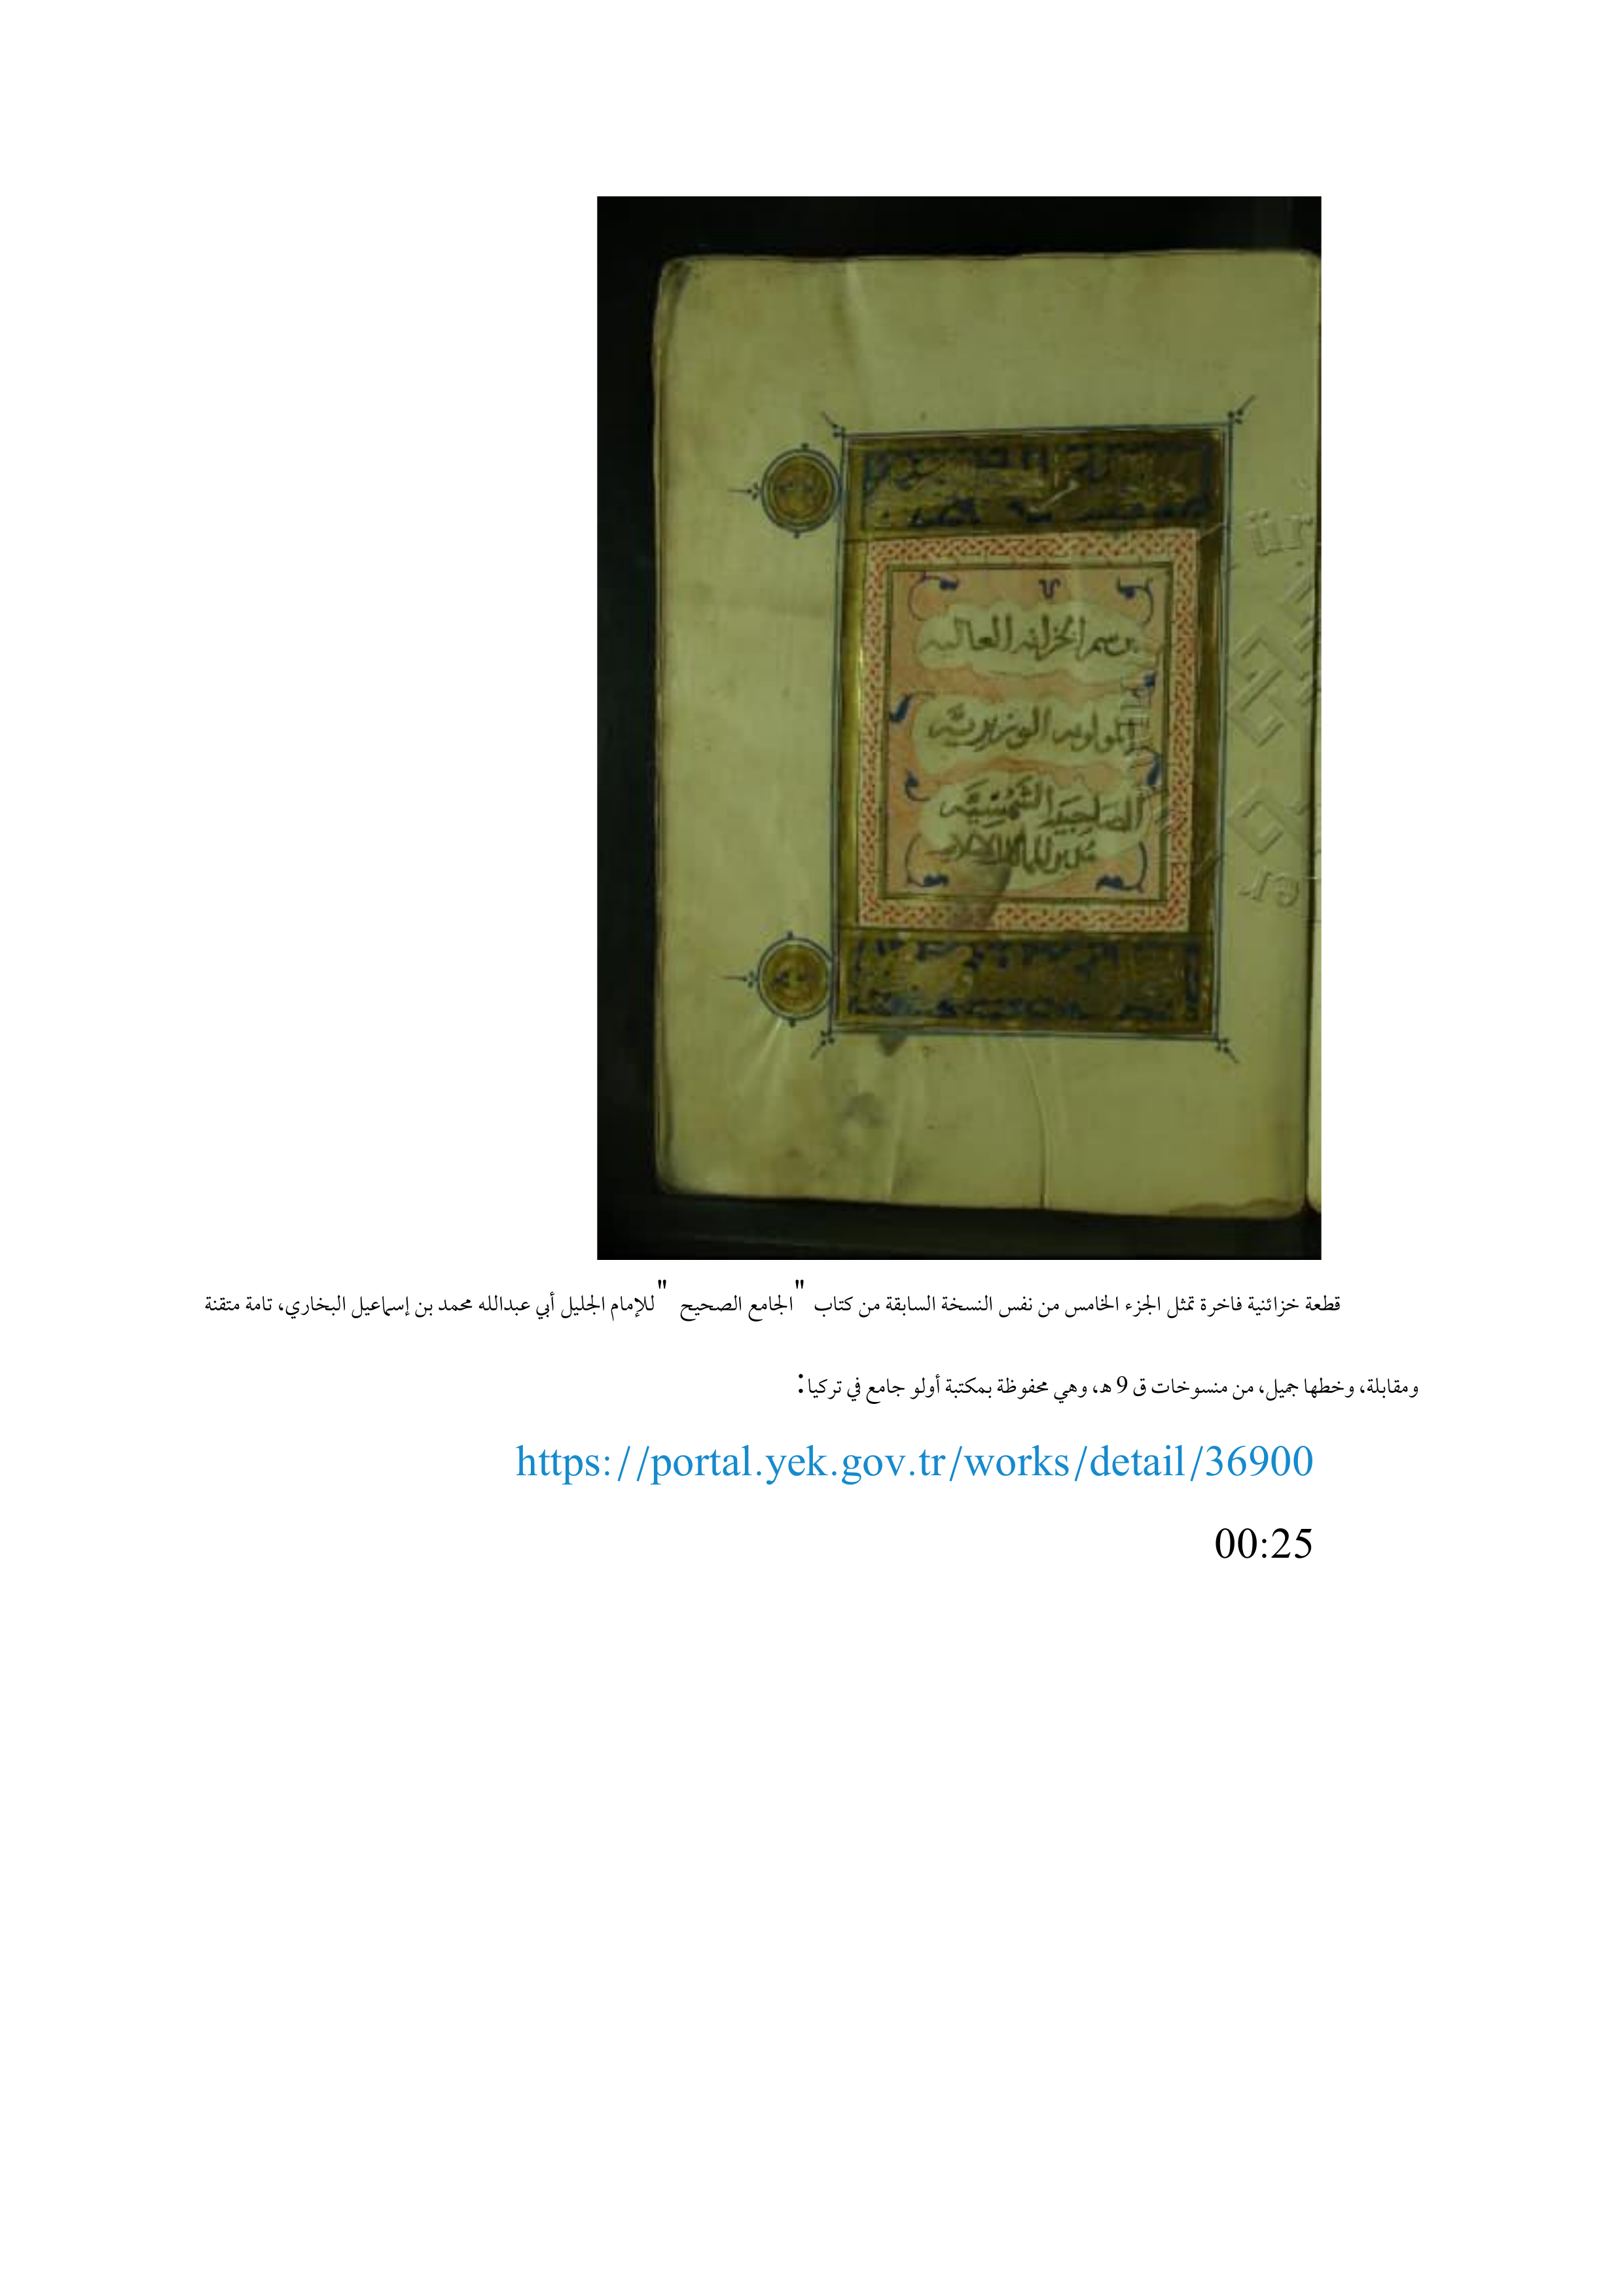 برسم الخزانه العاليه
المولويه الوزيريه
الصاحبيه الشمسيه
قطعة خزائنية فاخرة تمثل الجزء الخامس من نفس النسخة السابقة من كتاب "الجامع الصحيح" للإمام الجليل أبي عبدالله محمد بن إسماعيل البخاري، تامة متقنة
ومقابلة، وخطها جميل، من منسوخات ق 9 هـ، وهي محفوظة بمكتبة أولو جامع في تركيا:
https://portal.yek.gov.tr/works/detail/36900
00:25